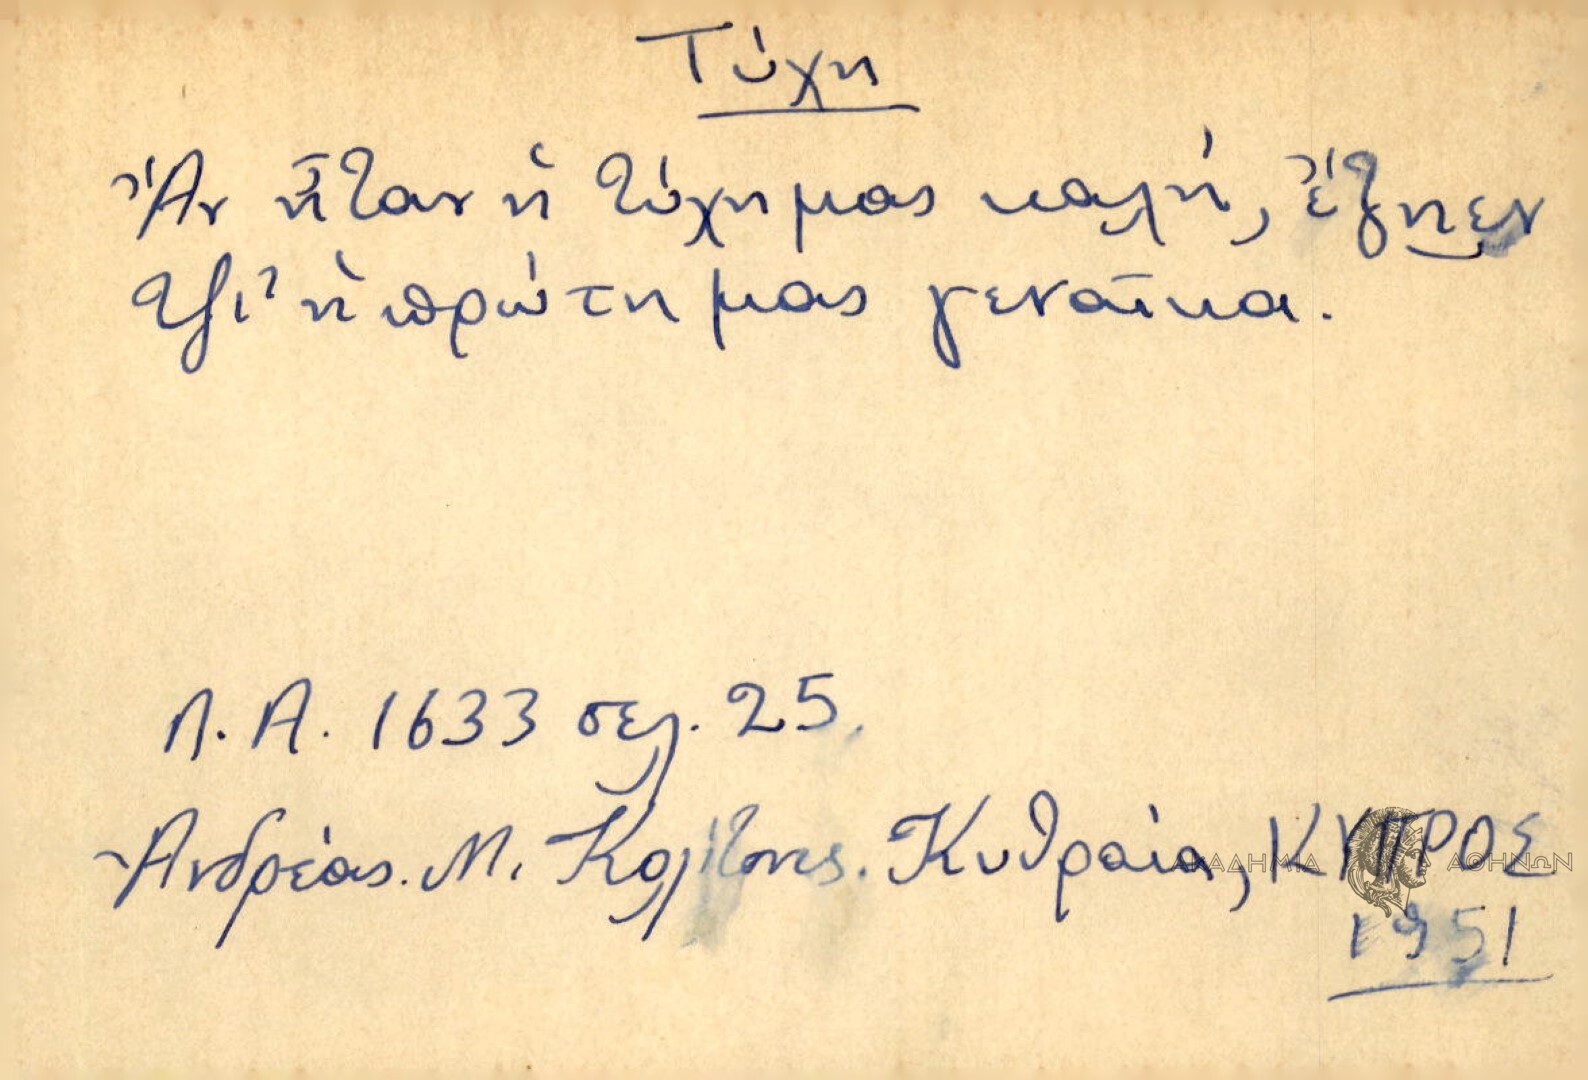 Τύχη
Ἄν ἦταν ἡ τύχη μας καλή, ἔζηεν
τζι' ἡ πρώτη μας γεναῖκα.
Λ. Α. 1633 σελ. 25.
Ἀνδρέας. Μ. Κυθραία, ΚΥΠΡΟΣ
ΑΚΑΔΗΜΙΑ ΑΘΗΝΩΝ
1951